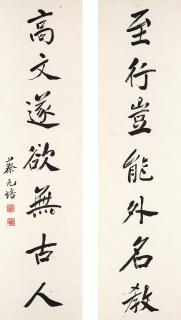 至行豈能外名教
高文遂欲無古人
蔡元培